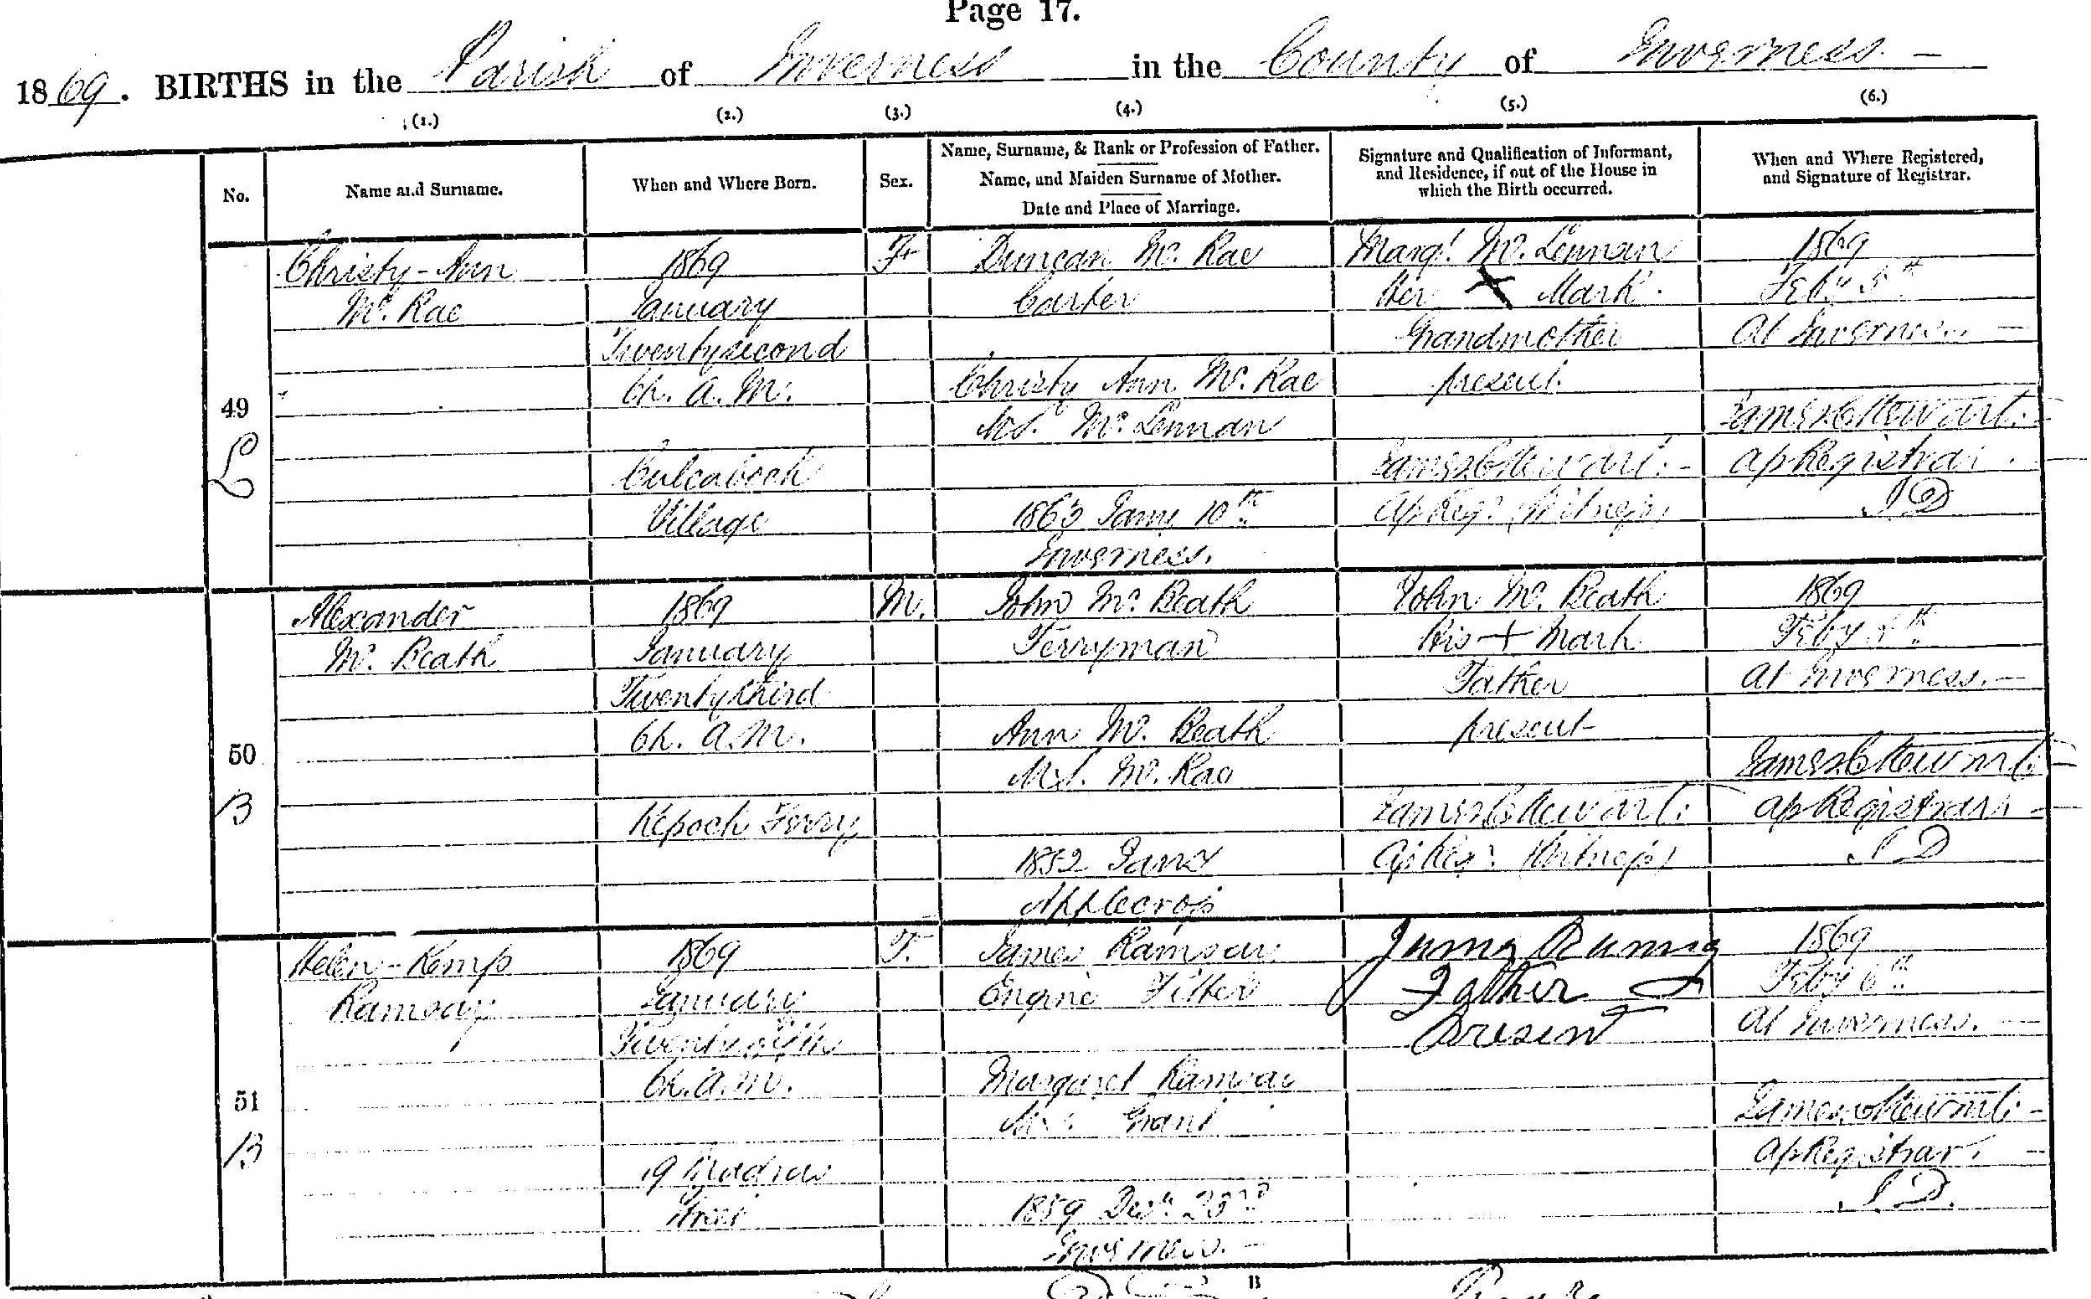 Page 17.
1869. BIRTHS in the Parish of Inverness in the County of Inverness
(1.) (2.) (3.) (4.) (5.) (6.)
No.
Name and Surname.
When and Where Born.
Sex.
Name, Surname, & Rank or Profession of Father.
Name, and Maiden Surname of Mother.
Date and Place of Marriage.
Signature and Qualification of Informant,
and Residence, if out of the House in
which the Birth occurred.
When and Where Registered,
and Signature of Registrar.
49
L
Christy-Ann
Mc. Rae
1869
January
Twentysecond
h. A.M.
Culcabock
Village
F.
Duncan Mc. Rae
Carter
Christy Ann Mc. Rae
M.S. Mc. Lennan
1863 Jany. 10th
Inverness.
Margt. Mc. Lennan
Her X Mark.
Grandmother
present.
James Stewart.
Witness
1869
Feby 5th
At Inverness
James Stewart.
Registrar.
50
B
Alexander
Mc. Beath
1869
January
Twentythird
h. A.M.
Kepoch Ferry
M.
John Mc. Beath
Ferryman
Ann Mc. Beath
M.S. Mc. Rae
1852 Jany
Applecross
John Mc. Beath
His + Mark
Father
present
James Stewart.
Witness
1869
Feby 5th
At Inverness.
James Stewart.
Registrar
51
B
Helen-Kemp
Ramsay
1869
January
h. A.M.
19 Madras
Street
F.
James Ramsay
Engine Fitter
Margaret Ramsay
M.S. Grant
1859 Decr. 23rd
Inverness.
Father
Present
1869
Feby 6th
At Inverness.
James Stewart.
Registrar.
B